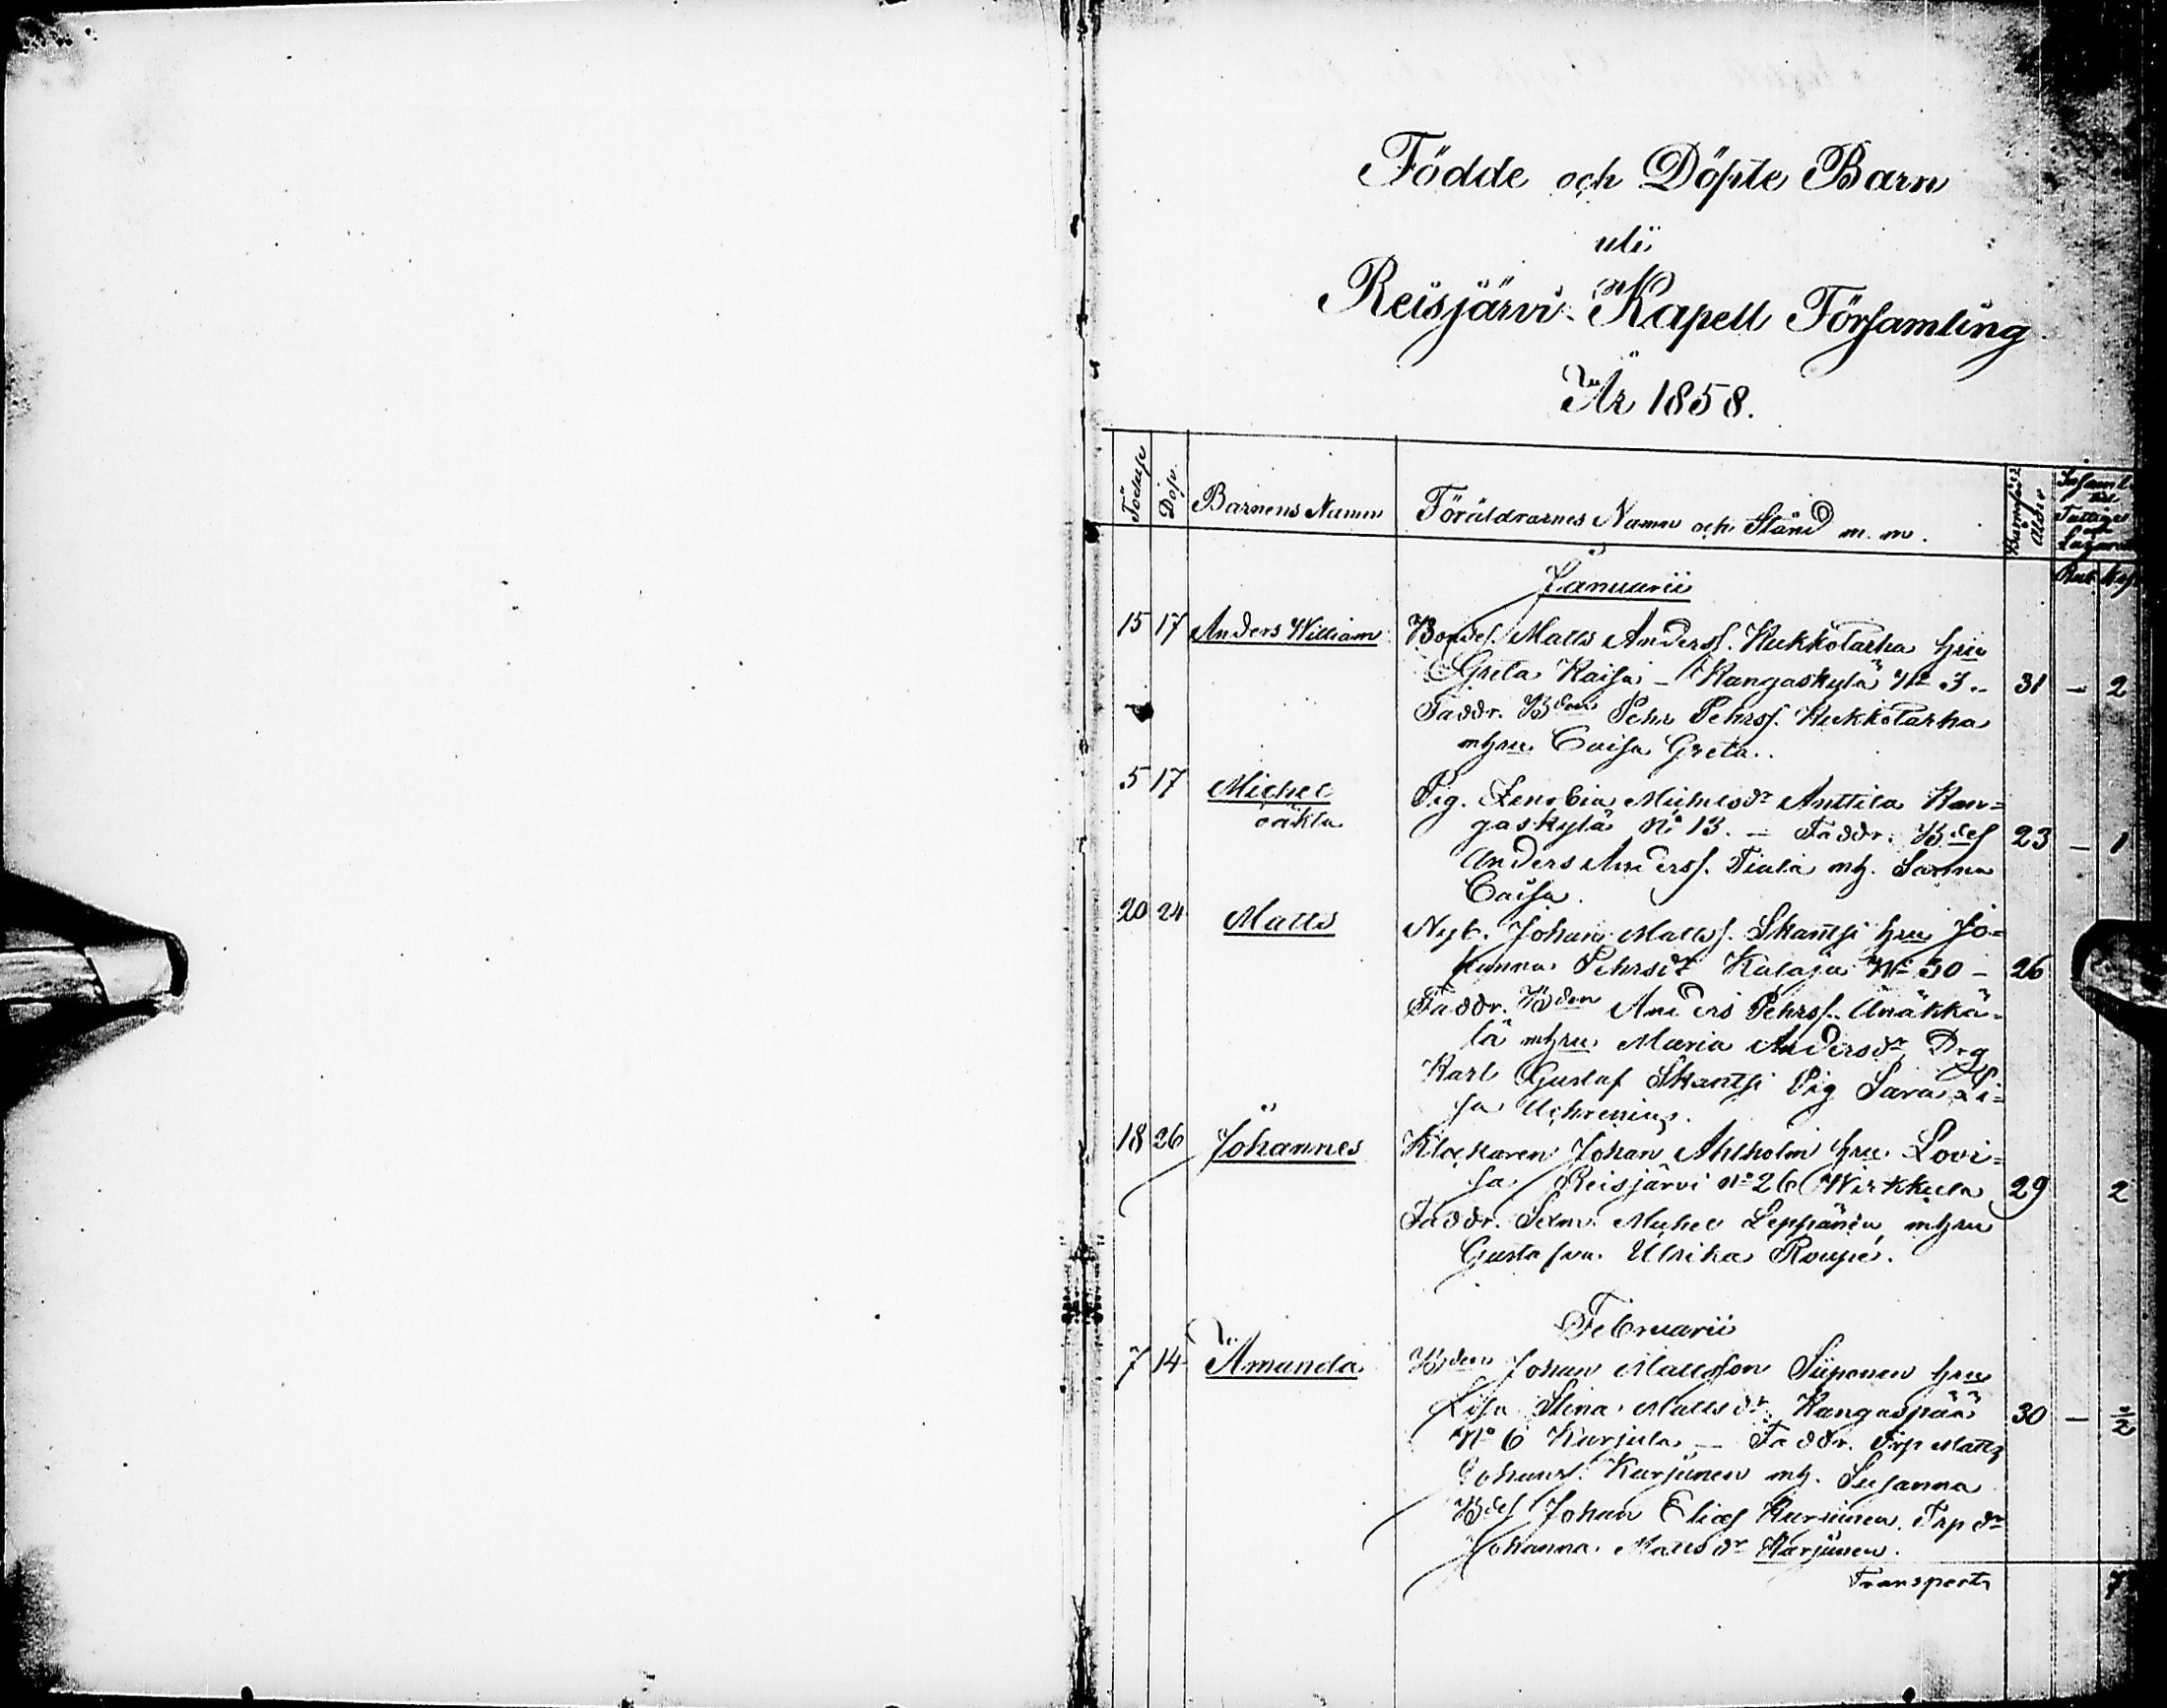 Födde och Döpte Barn
uti
Reisjärvi Kapell Församling
År 1858.
Födelse Döp. Barnens Namn Föräldrarnes Namn och Stånd m. m. Barnaföd: Ålder
Rub. Kop.
Januarii
15 17 Anders William Bondes. Matts Anderss. Kukkotarha hru
Greta Kaisa - Kangaskylä No 3. 31 - 2
Faddr. Bden Pehr Pehrss. Kukkotarha
mhru Caisa Greta.
5 17 Michel Pig. Zenobia Michelsdr Anttila Kan=
oäkta gaskylä No 13. - Faddr. Bdes 23 - 1
Anders Anderss. Tiala mh. Sanna
Caisa.
20 24 Matts Nyb. Johan Matss. Skantsi hru Jo=
hanna Pehrsdr Kalaja No 30 - 26
Faddr. Bden Anders Pehrss. Änäkkä=
lä mhru Maria Andersdr Drg
Karl Gustaf Skantsi Pig Sara Li=
sa
18 26 Johannes Klockaren Johan Ahlholm hru Lovi=
sa Reisjärvi No 26 Wirkkula 29 2
Faddr. Michel Leppänen mhru
Gustafva Ulrika
Februarii
7 14 Amanda Bden Johan Mattsson Siiponen hru
Lisa Stina Mattsdr Kangaspää 30 - 2
No 6 Kurjula - Faddr. Trp Matts
Johanss. Karjunen mh. Susanna
Bdes Johan Elias Trp dr
Johanna Mattsdr Karjunen.
Transport 7